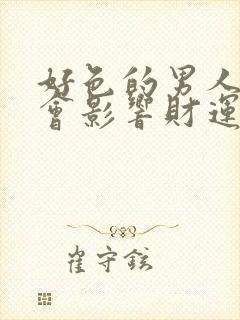 好色的男人
會影響財運
崔守鉉